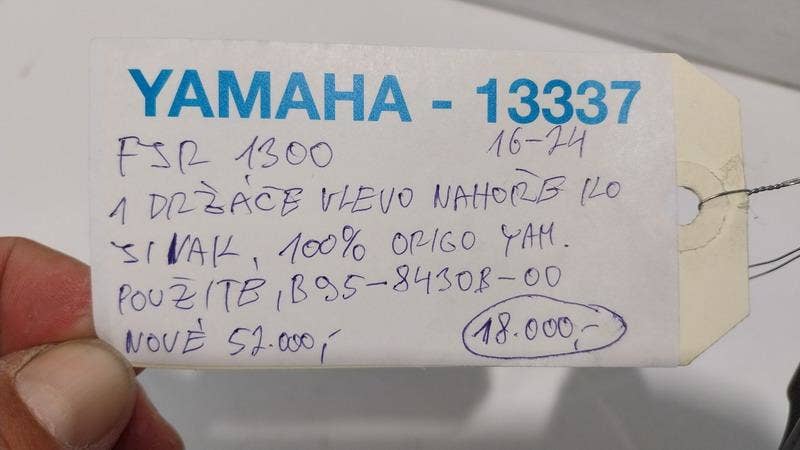 YAMAHA - 13337
FJR 1300 16-24
1 DRŽÁČE VLEVO NAHOŘE
100% ORIGO YAM.
POUŽITÉ, B95-8430B-00
NOVÉ 52.000,-
18.000,-